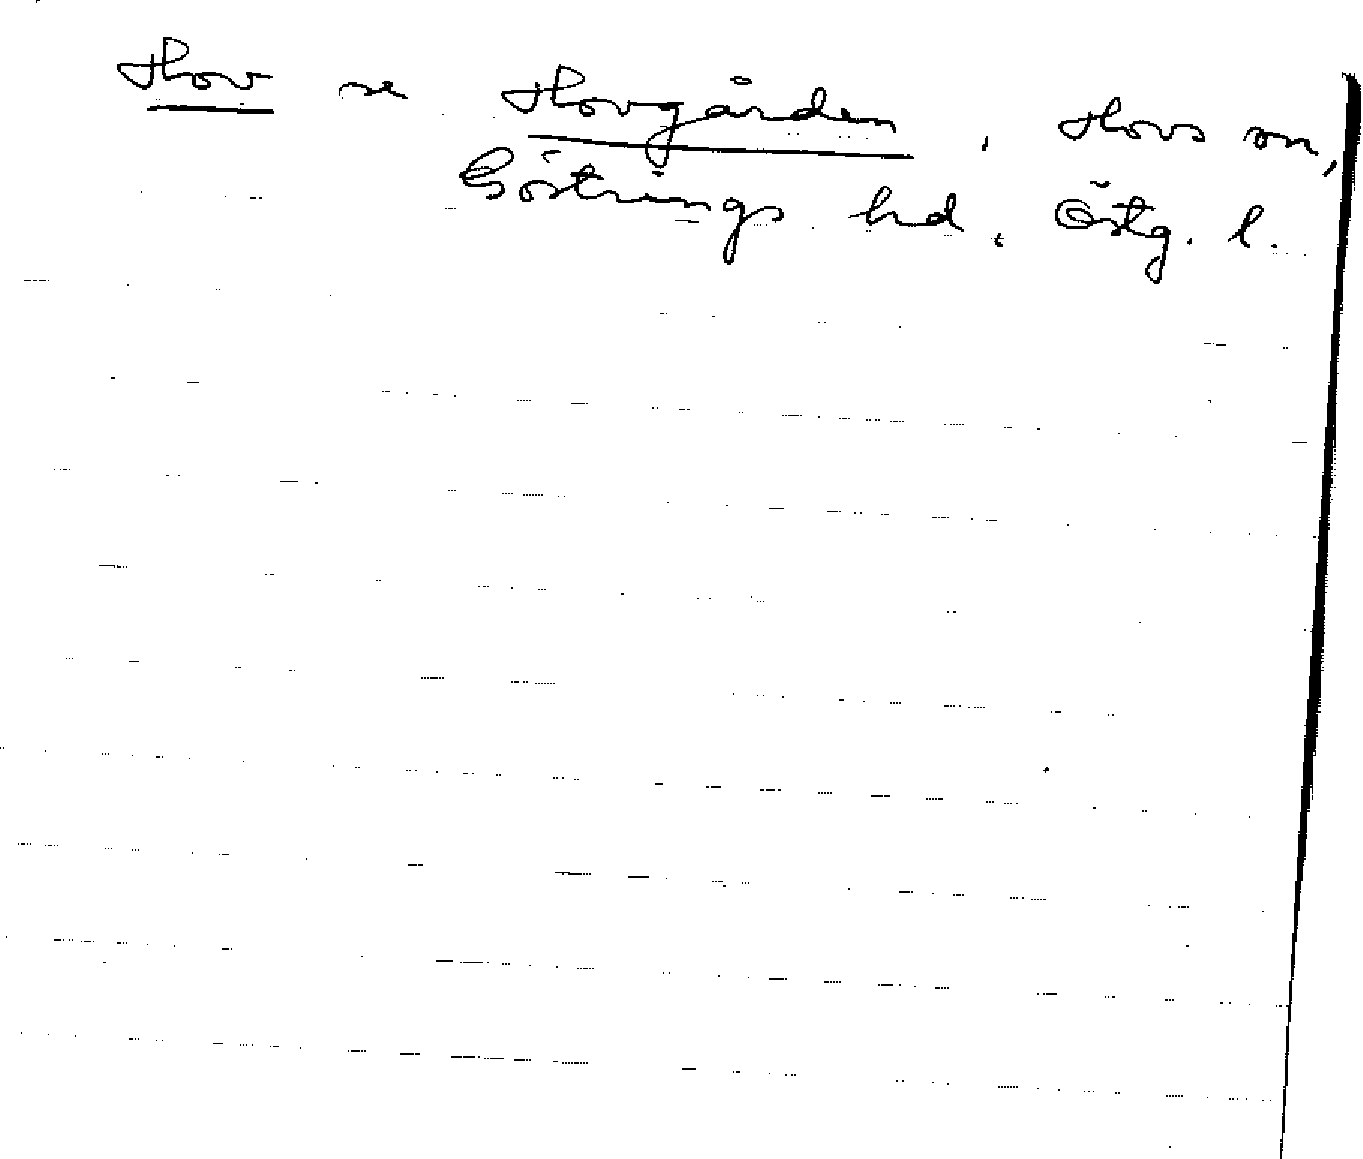 Hov se Hovgården, Hovs sn,
Göstrings hd, Östg. l.